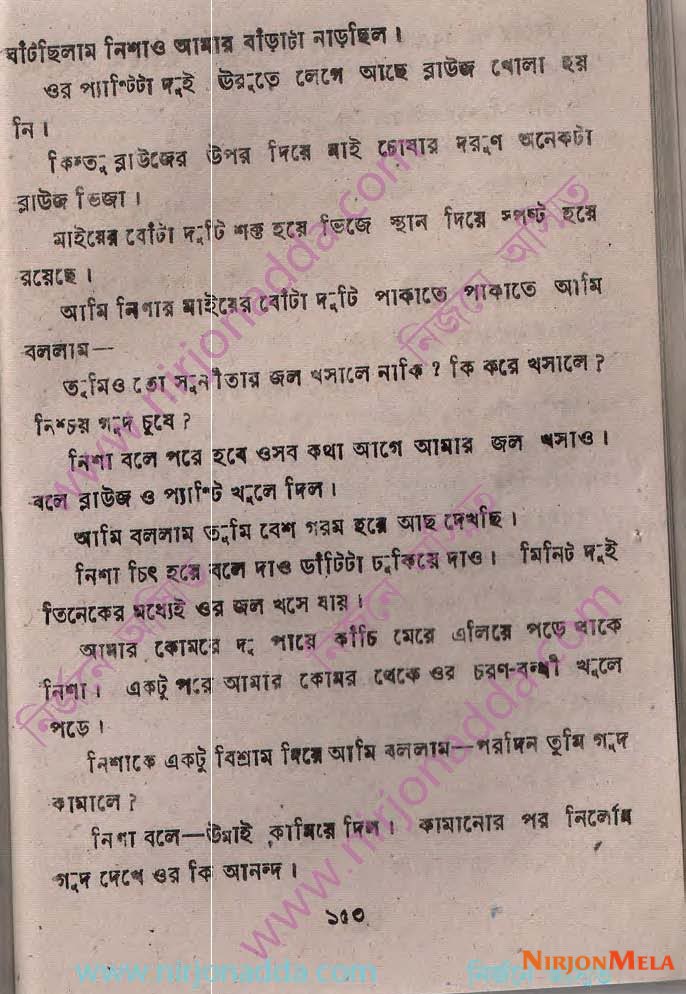 ঘাঁটছিলাম নিশাও আমার বাঁড়াটা নাড়ছিল।
ওর প্যান্টিটা দুই ঊরুতে লেগে আছে ব্লাউজ খোলা হয়
নি।
কিন্তু ব্লাউজের উপর দিয়ে মাই চোষার দরুণ অনেকটা
ব্লাউজ ভিজা।
মাইয়ের বোঁটা দুটি শক্ত হয়ে ভিজে স্থান দিয়ে স্পষ্ট হয়ে
রয়েছে।
আমি নিশার মাইয়ের বোঁটা দুটি পাকাতে পাকাতে আমি
বললাম—
তুমিও তো সুনীতার জল খসালে নাকি? কি করে খসালে?
নিশ্চয় গুদ চুষে?
নিশা বলে পরে হবে ওসব কথা আগে আমার জল খসাও।
বলে ব্লাউজ ও প্যান্টি খুলে দিল।
আমি বললাম তুমি বেশ গরম হয়ে আছ দেখছি।
নিশা চিৎ হয়ে বলে দাও ডাঁটিটা ঢুকিয়ে দাও। মিনিট দুই
তিনেকের মধ্যেই ওর জল খসে যায়।
আমার কোমরে দু পায়ে কাঁচি মেরে এলিয়ে পড়ে থাকে
নিশা। একটু পরে আমার কোমর থেকে ওর চরণ-বন্ধী খুলে
পড়ে।
নিশাকে একটু বিশ্রাম দিয়ে আমি বললাম—পরদিন তুমি গুদ
কামালে?
নিশা বলে—উমাই কামিয়ে দিল। কামানোর পর নির্লোম
গুদ দেখে ওর কি আনন্দ।
১৫৩
www.nirjonadda.com
নির্জনে অসিত
নির্জনে অসিত
নির্জনে অসিত
www.nirjonadda.com
www.nirjonadda.com
NIRJONMELA